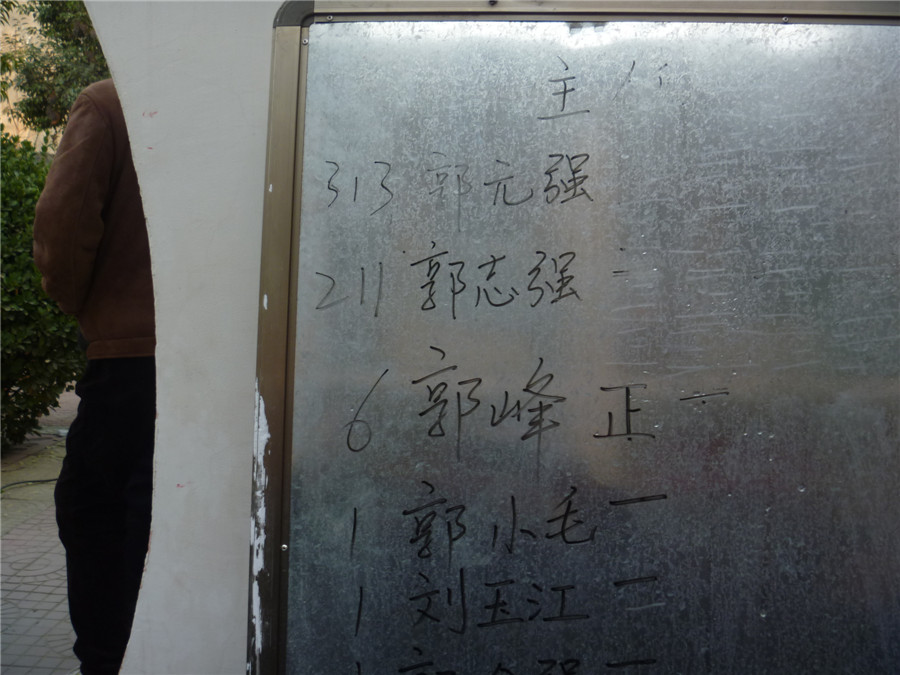 主任
313 郭元强
211 郭志强 一
6 郭峰 正一
1 郭小毛 一
1 刘玉江 一